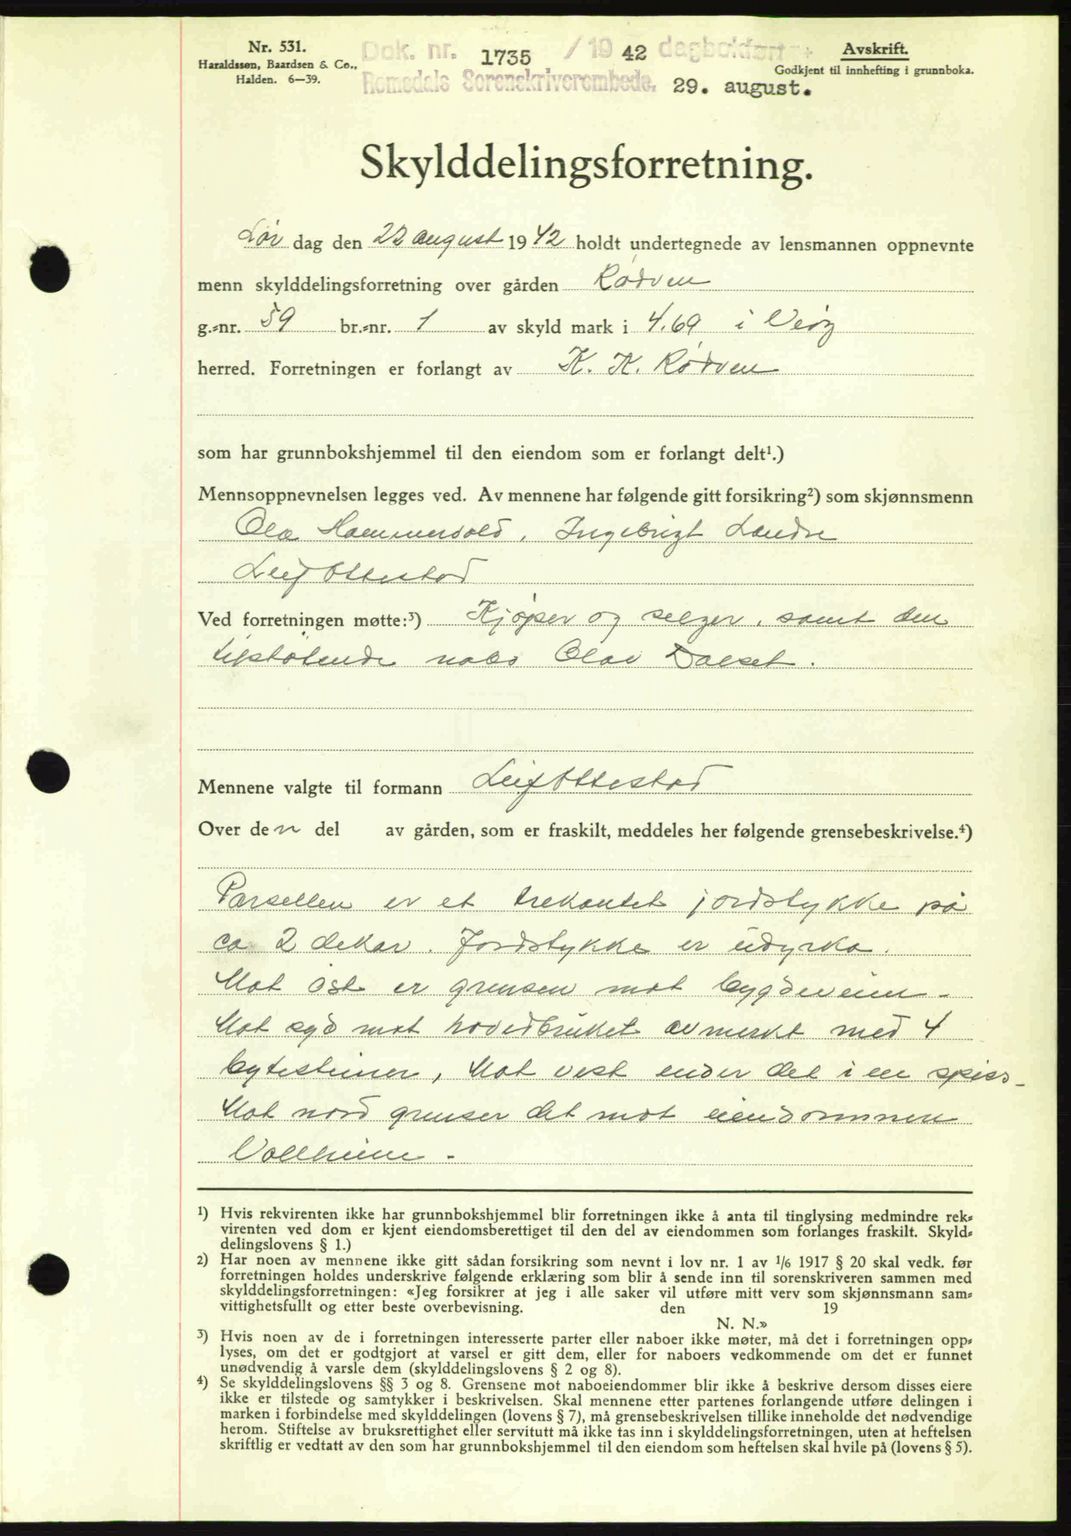 Nr. 531.
Haraldssen, Baardsen & Co.,
Halden. 6—39.
Dok. nr. 1735 / 19 42 dagbokført
Romsdals Sorenskriverembede. 29. august.
Avskrift.
Godkjent til innhefting i grunnboka.
Skylddelingsforretning.
Lør dag den 22 august 1942 holdt undertegnede av lensmannen oppnevnte
menn skylddelingsforretning over gården Rødven
g.=nr. 59 br.=nr. 1 av skyld mark i 4.69 i Veøy
herred. Forretningen er forlangt av K. K. Rødven
som har grunnbokshjemmel til den eiendom som er forlangt delt¹.)
Mennsoppnevnelsen legges ved. Av mennene har følgende gitt forsikring²) som skjønnsmenn
Ola Hammervold, Ingebrigt Landre
Leif Ottestad
Ved forretningen møtte:³) Kjøper og selger, samt den
tilstøtende nabo Olav Dalset.
Mennene valgte til formann Leif Ottestad
Over den del av gården, som er fraskilt, meddeles her følgende grensebeskrivelse.⁴)
Parsellen er et trekantet jordstykke på
ca 2 dekar. Jordstykke er udyrka.
Mot øst er grensen mot bygdeveien.
Mot syd mot hovedbruket avmerkt med 4
bytesteiner, Mot vest ender det i en spiss-
Mot nord grenser det mot eiendommen
Vollheim -
¹) Hvis rekvirenten ikke har grunnbokshjemmel blir forretningen ikke å anta til tinglysing medmindre rek=
virenten ved dom er kjent eiendomsberettiget til den del av eiendommen som forlanges fraskilt. Skyld=
delingslovens § 1.)
²) Har noen av mennene ikke gitt sådan forsikring som nevnt i lov nr. 1 av ¹/6 1917 § 20 skal vedk. før
forretningen holdes underskrive følgende erklæring som blir å sende inn til sorenskriveren sammen med
skylddelingsforretningen: «Jeg forsikrer at jeg i alle saker vil utføre mitt verv som skjønnsmann sam=
vittighetsfullt og etter beste overbevisning. den 19
N. N.»
³) Hvis noen av de i forretningen interesserte parter eller naboer ikke møter, må det i forretningen opp=
lyses, om det er godtgjort at varsel er gitt dem, eller for naboers vedkommende om det er funnet
unødvendig å varsle dem (skylddelingslovens § 2 og 8).
⁴) Se skylddelingslovens §§ 3 og 8. Grensene mot naboeiendommer blir ikke å beskrive dersom disses eiere
ikke er tilstede og samtykker i beskrivelsen. Skal mennene etter partenes forlangende utføre delingen i
marken i forbindelse med skylddelingen (lovens § 7), må grensebeskrivelsen tillike inneholde det nødvendige
herom. Stiftelse av bruksrettighet eller servitutt må ikke tas inn i skylddelingsforretningen, uten at heftelsen
skriftlig er vedtatt av den som har grunnbokshjemmel til den eiendom som heftelsen skal hvile på (lovens § 5).